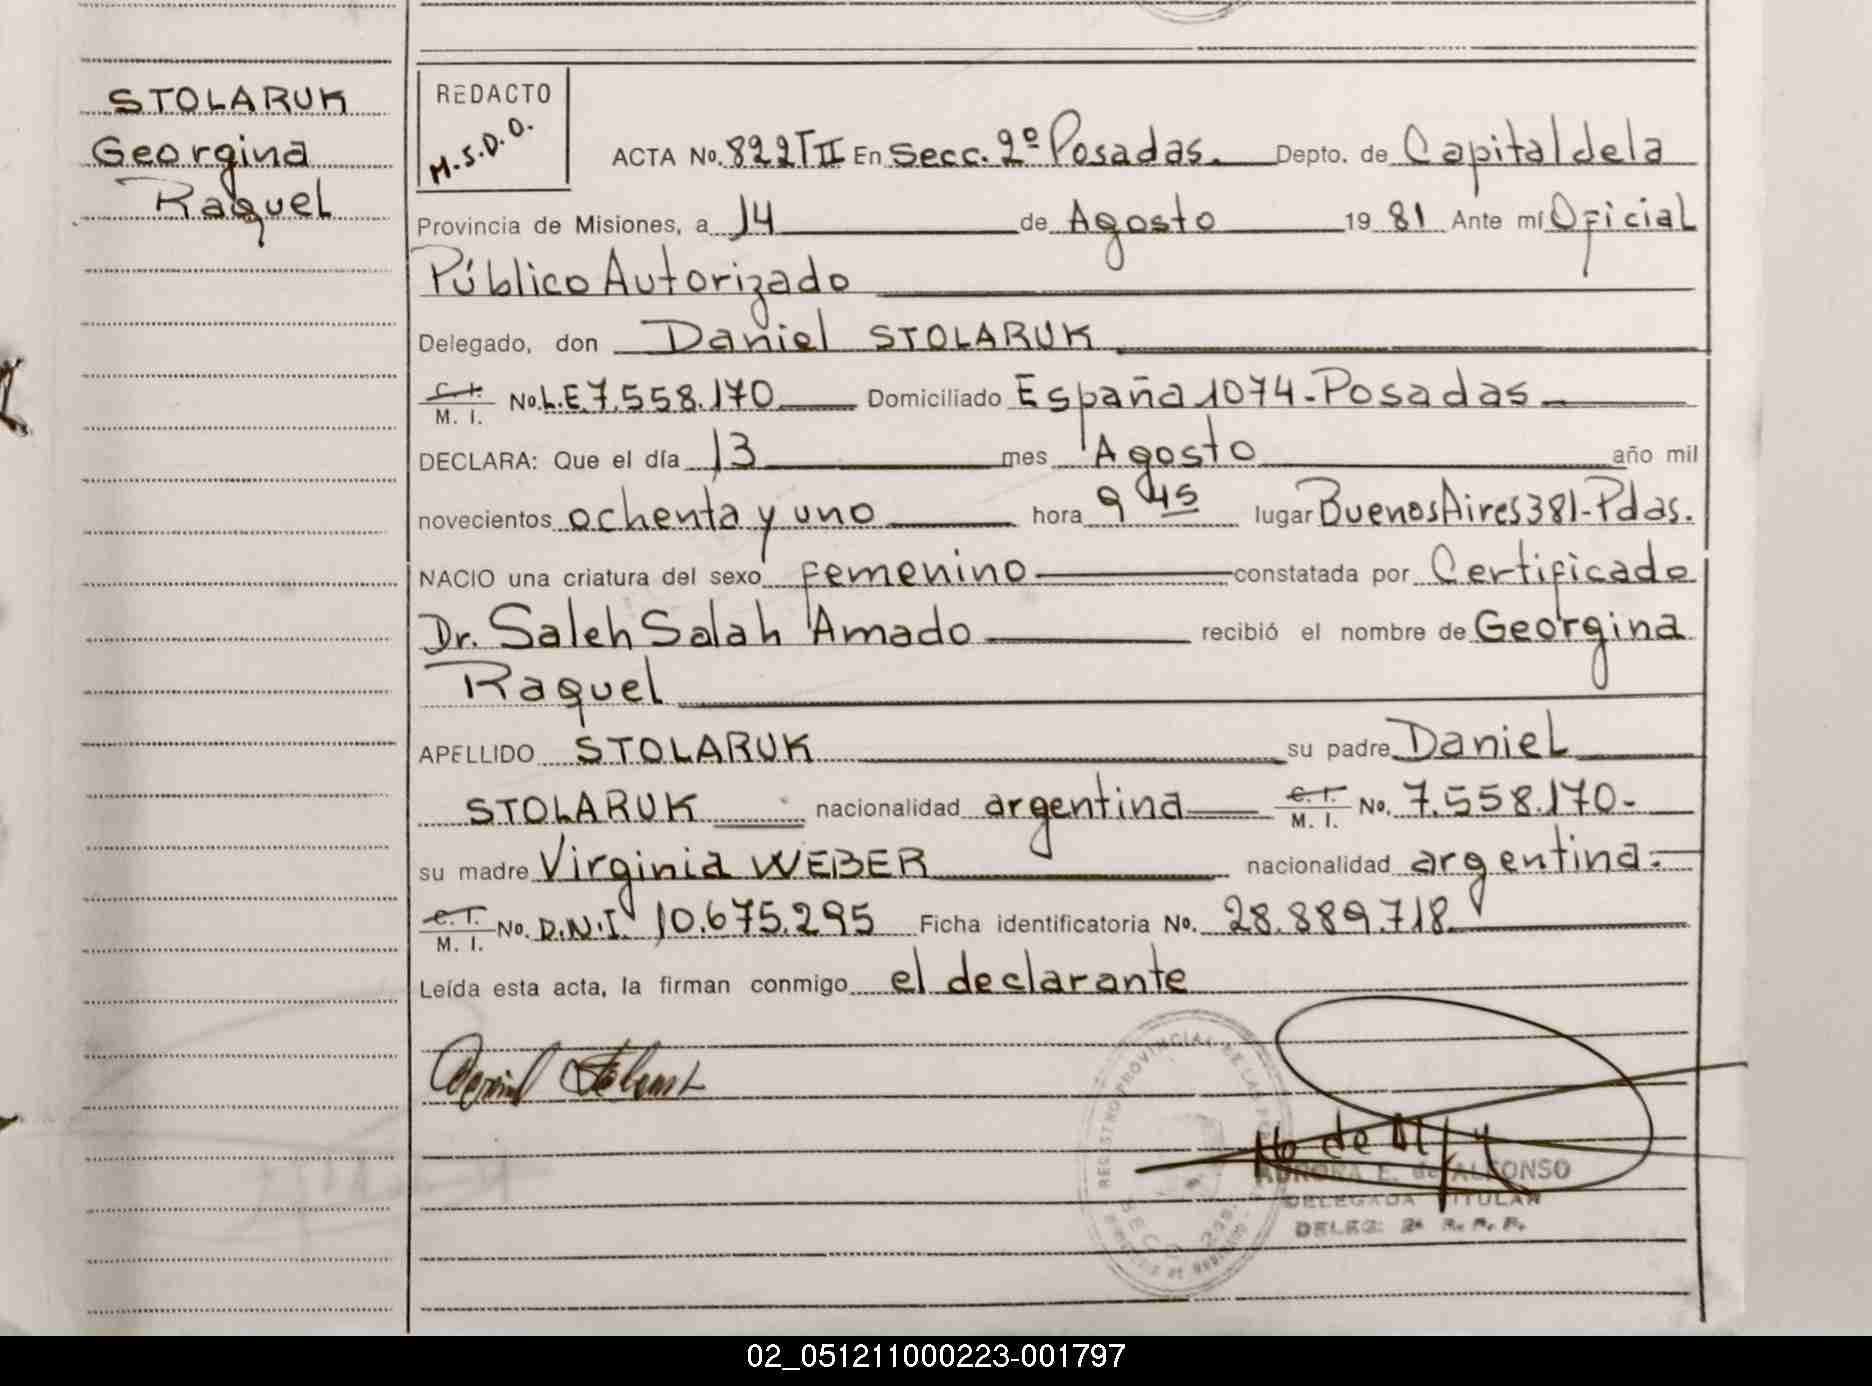 STOLARUK
Georgina
Raquel
REDACTO
M.S.D.O.
ACTA No. 822 T II En Secc. 2º Posadas. Depto. de Capital de la
Provincia de Misiones, a 14 de Agosto 19 81 Ante mí Oficial
Público Autorizado
Delegado, don Daniel STOLARUK
C. I.
M. I. No. L.E. 7.558.170 Domiciliado España 1074 - Posadas
DECLARA: Que el día 13 mes Agosto año mil
novecientos ochenta y uno hora 9 45 lugar Buenos Aires 381 - Pdas.
NACIO una criatura del sexo femenino constatada por Certificado
Dr. Saleh Salah Amado recibió el nombre de Georgina
Raquel
APELLIDO STOLARUK su padre Daniel
STOLARUK nacionalidad argentina C. I. M. I. No. 7.558.170-
su madre Virginia WEBER nacionalidad argentina
C. I.
M. I. No. D.N.I. 10.675.295 Ficha identificatoria No. 28.889.718
Leída esta acta, la firman conmigo el declarante
REGISTRO PROVINCIAL DE LAS
AURORA E. de ALFONSO
DELEGADA TITULAR
DELEG. 2ª R. P. P.
02_051211000223-001797